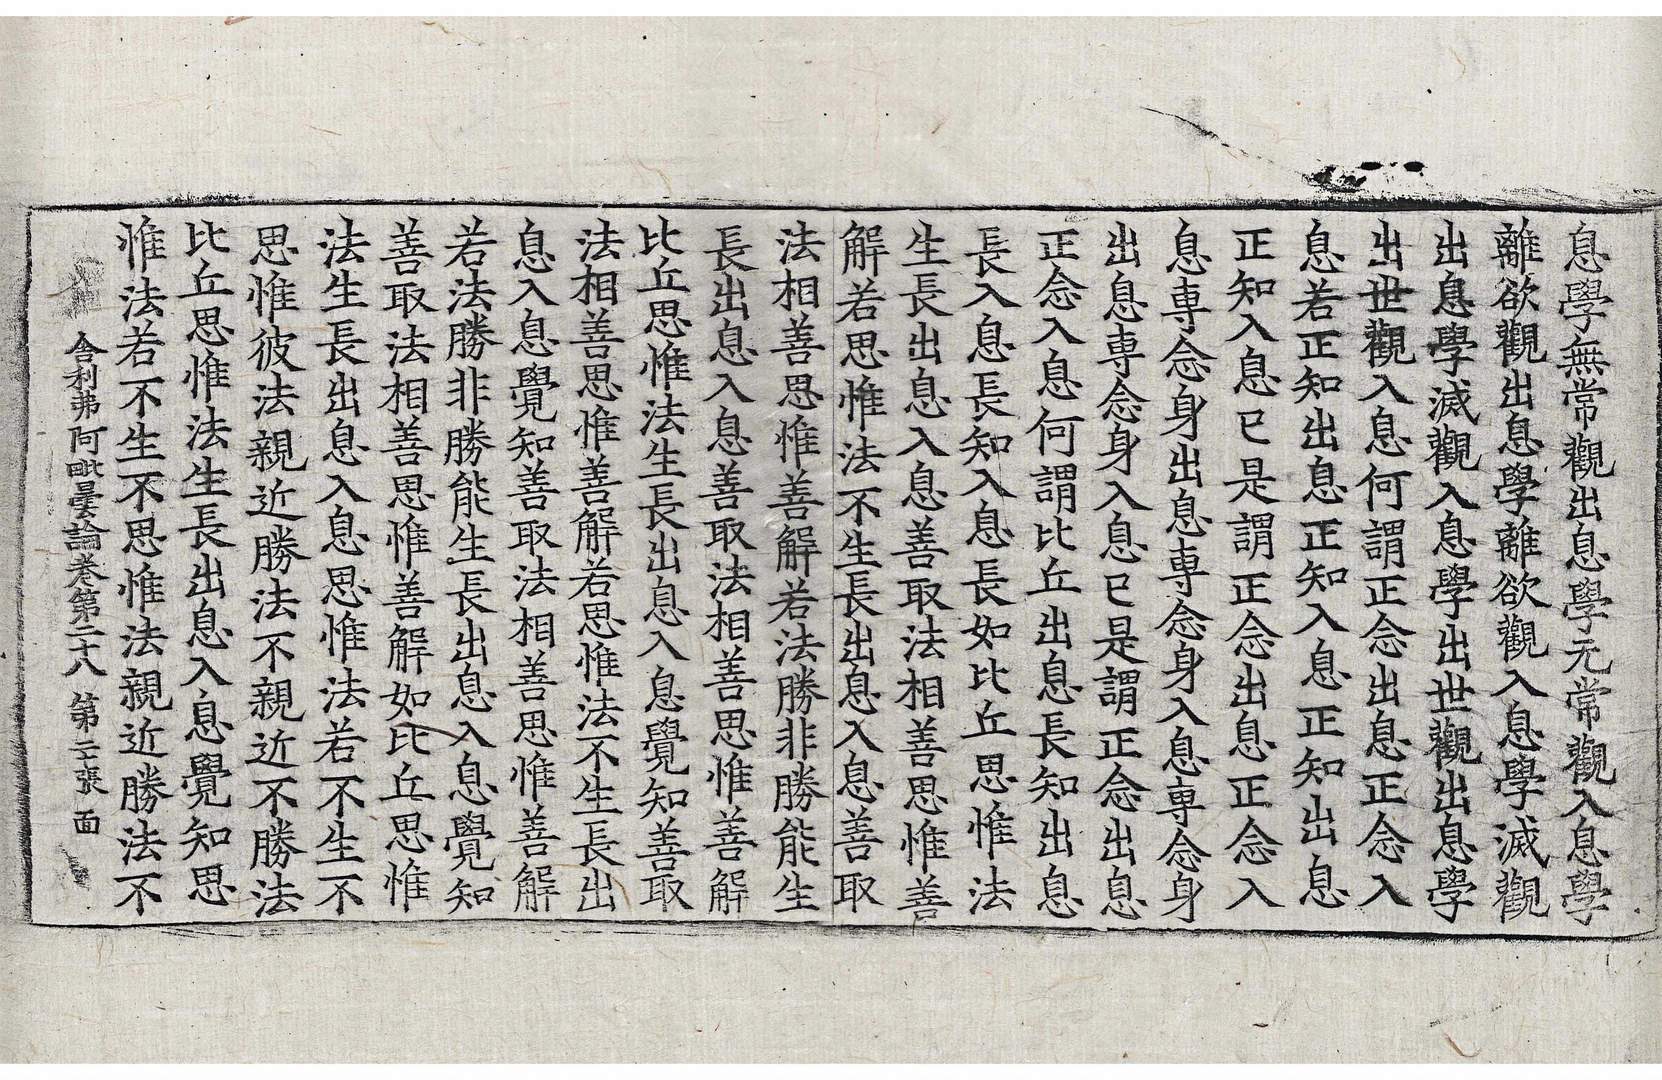 息學無常觀出息學元常觀入息學
離欲觀出息學離欲觀入息學滅觀
出息學滅觀入息學出世觀出息學
出世觀入息何謂正念出息正念入
息若正知出息正知入息正知出息
正知入息已是謂正念出息正念入
息専念身出息専念身入息専念身
出息専念身入息已是謂正念出息
正念入息何謂比丘出息長知出息
長入息長知入息長如比丘思惟法
生長出息入息善取法相善思惟善
解若思惟法不生長出息入息善取
法相善思惟善解若法勝非勝能生
長出息入息善取法相善思惟善解
比丘思惟法生長出息入息覺知善取
法相善思惟善解若思惟法不生長出
息入息覺知善取法相善思惟善解
若法勝非勝能生長出息入息覺知
善取法相善思惟善解如比丘思惟
法生長出息入息思惟法若不生不
思惟彼法親近勝法不親近不勝法
比丘思惟法生長出息入息覺知思
惟法若不生不思惟法親近勝法不
舍利弗阿毗曇論卷第二十八 第二張 面